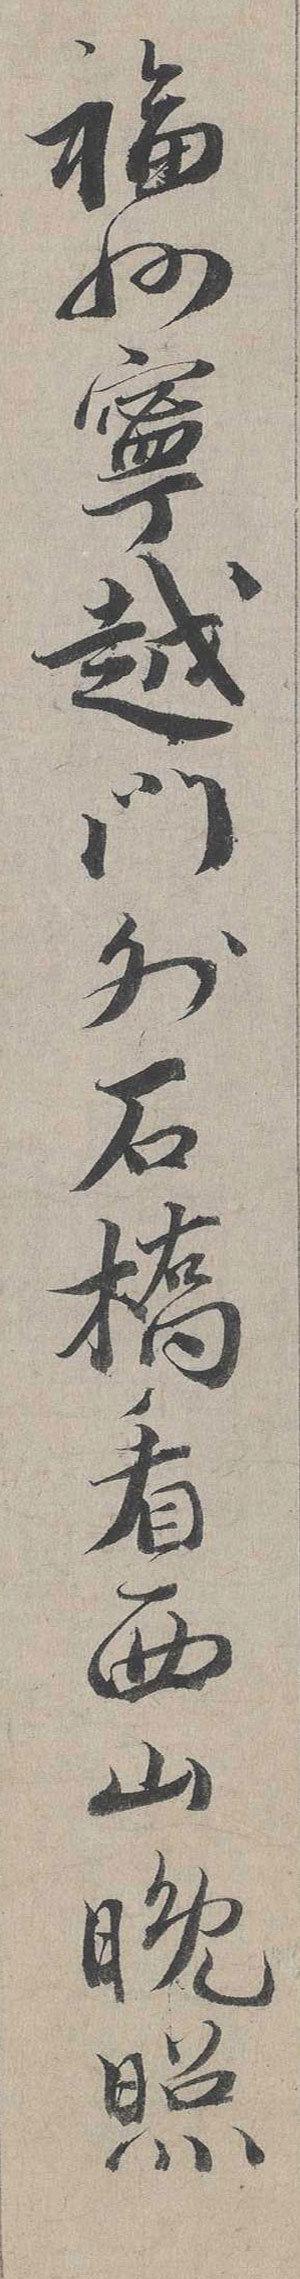 福州寧越門外石橋看西山晚照